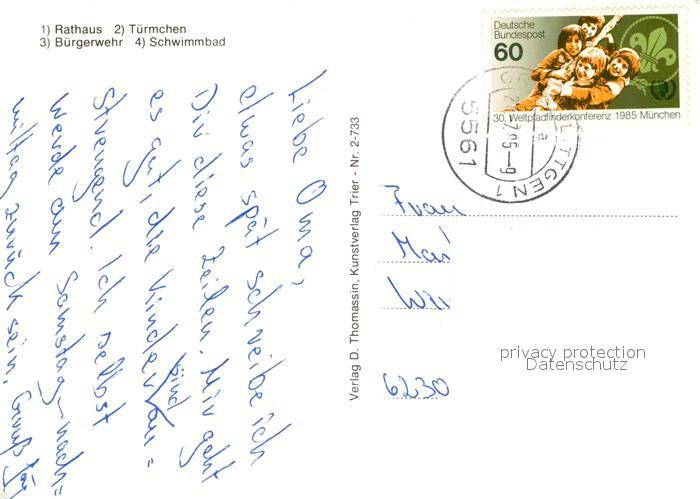 1) Rathaus 2) Türmchen
3) Bürgerwehr 4) Schwimmbad
Liebe Oma,
etwas spät schreibe ich
Dir diese Zeilen. Mir geht
es gut, die Kinder
sind
strengend. Ich selbst
werde am Samstag-nach=
mittag zurück sein. Gruß
Verlag D. Thomassin, Kunstverlag Trier - Nr. 2-733
Deutsche
Bundespost
60
30. Weltpfadfinderkonferenz 1985 München
5561
TTGEN 1
a
-9
Frau
6230
privacy protection
Datenschutz